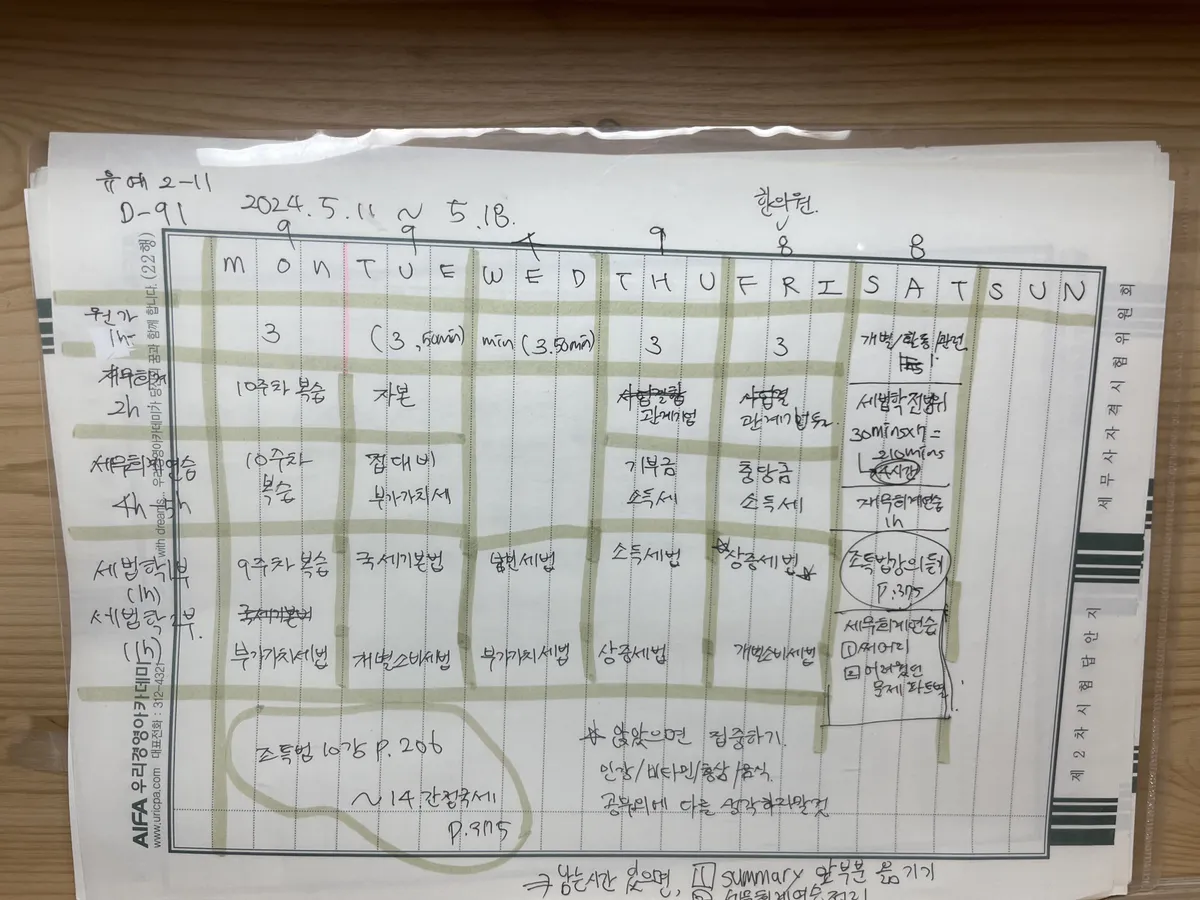 유예 2-11
D-91 2024. 5. 11 ~ 5. 18.
한약원.
9 9 4 9 8 8
MON TUE WED THU FRI SAT SUN
원가 1h 3 (3, 50min) min (3.50min) 3 3 개별/활동/관련
재무회계 2h 10주차 복습 자본 관계기업 관계기업투
세법학전범위
30mins×7 =
210mins
4시간
세무회계연습 4h-5h
10주차 복습
접대비
부가가치세
기부금
소득세
충당금
소득세
재무회계연습
1h
세법학1부 (1h) 9주차 복습 국세기본법 세법 소득세법 ☆상증세법☆
조특법강의듣기
P.375
세법학2부. (1h) 국세기본법
부가가치세법 개별소비세법 부가가치세법 상증세법 개별소비세법
세무회계연습
① 찌어리
② 어려웠던
문제 파트별
조특법 10강 P.206
~ 14. 간접국세
P.375
☆ 앉았으면 집중하기.
인강/비타민/홍삼/음식.
공부외에 다른 생각하지말것
⇒ 남는시간 있으면, ① summary 앞부분 옮기기
② 세무회계연습정리
AIFA 우리경영아카데미
www.uricpa.com 대표전화 : 312-4321
with dreams.. 우리경영아카데미가 당신의 꿈과 함께 합니다. (22행)
세무사자격시험위원회
제2차시험답안지